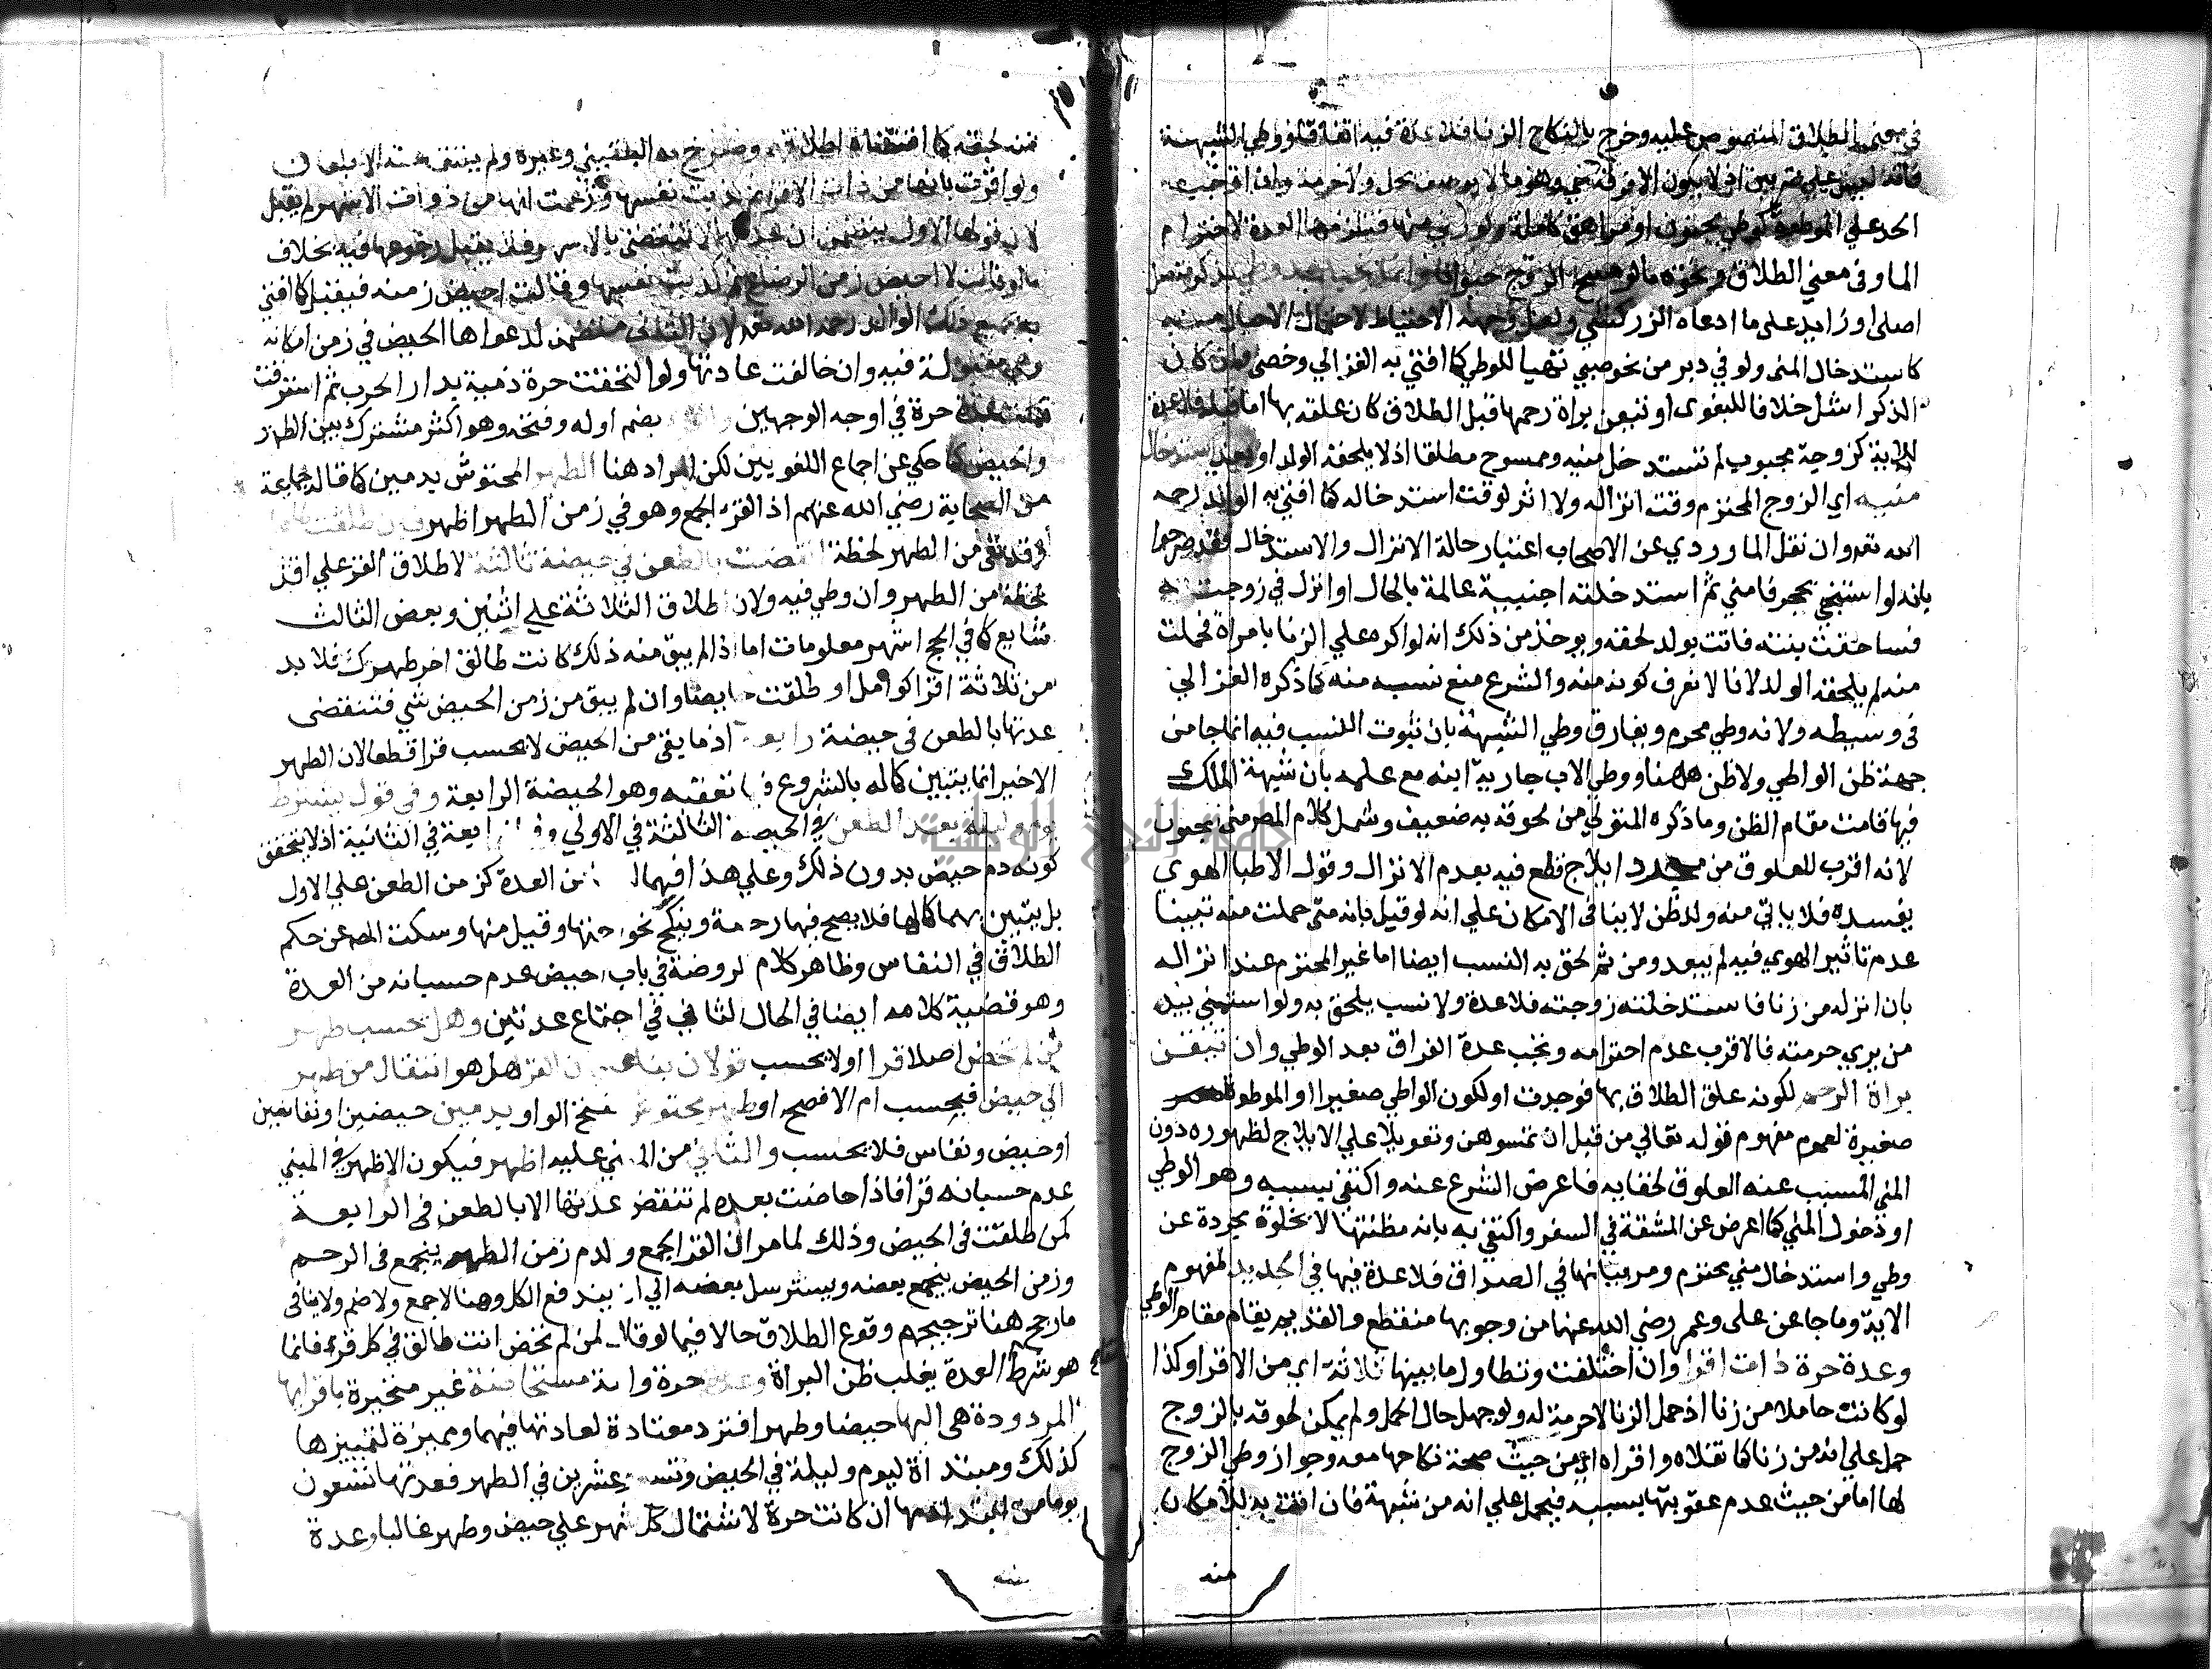 في معنى الطلاق المنصوص عليه وخرج بالنكاح الزنا فلا عدة فيه اتفاقا ووطي الشبهة
الحد على الموطوة كوطي مجنون او مراهق كاملة ولو زنى منها فيلزمها العدة لاحترام
الماء وفي معنى الطلاق ونحوه مالو مسخ الزوج حيوانا
اصلي او زايد على ما ادعاه الزركشي ولعل وجهه الاحتياط لاحتمال الاحبال منه
كاستدخال المني ولو في دبر من نحو صبي تهيا للوطي كما افتى به الغزالي وخصي وان كان
الذكر اشل خلافا للبغوى او تيقن براة رحمها قبل الطلاق كان علقه بها اما قبله فلا عدة
للاية كزوجة مجبوب لم تستدخل منيه وممسوح مطلقا اذ لا يلحقه الولد او بعد استدخال
منيه اي الزوج المحترم وقت انزاله ولا اثر لوقت استدخاله كما افتى به الوالد رحمه
الله تعه وان نقل الماوردي عن الاصحاب اعتبار حالة الانزال والاستدخال فقد صرحوا
بانه لو استنجى بحجر فامني ثم استدخلته اجنبية عالمة بالحال او انزل في زوجته
فساحقت بنته فاتت بولد لحقه ويوخذ من ذلك انه لو اكره على الزنا بامراة فحملت
منه لم يلحقه الولد لانا لا نعرف كونه منه والشرع منع نسبه منه كما ذكره الغزالي
في وسيطه ولانه وطي محرم ويفارق وطي الشبهة بان ثبوت النسب فيه انما جا من
جهة ظن الواطي ولا ظن هاهنا ووطي الاب جارية ابنه مع علمه بان شبهة الملك
فيها قامت مقام الظن وما ذكره المتولي من لحوقه به ضعيف وشمل كلام المص مني مجبوب
لانه اقرب للعلوق من مجرد ايلاج قطع فيه بعدم الانزال وقول الاطبا الهوى
يفسده فلا ياتي منه ولد ظن لا ينافي الامكان على انه لو قيل بانه متى حملت منه تبينا
عدم تاثير الهوي فيه لم يبعد ومن ثم لحق به النسب ايضا اما غير المحترم عند انزاله
بان انزله من زنا فاستدخلته زوجته فلا عدة ولا نسب يلحق به ولو استمني بيد
من يري حرمته فالاقرب عدم احترامه وتجب عدة الفراق بعد الوطي وان تيقن
براة الرحم لكونه علق الطلاق بها فوجدت او لكون الواطي صغيرا او الموطوة
صغيرة لعموم مفهوم قوله تعالي من قبل ان تمسوهن وتعويلا علي الايلاج لظهوره دون
المني المسبب عنه العلوق لخفايه فاعرض الشرع عنه واكتفى بسببه وهو الوطي
او دخول المني كما اعرض عن المشقة في السفر واكتفى به بانه مظنتها لا بخلوة مجردة عن
وطي واستدخال مني محترم ومر بيانها في الصداق فلا عدة فيها في الجديد لمفهوم
الاية وما جا عن على وعمر رضي الله عنهما من وجوبها منقطع والقديم يقام مقام الوطي
وعدة حرة ذات اقرا وان اختلفت وتطاول ما بينها ثلاثة اي من الاقرا وكذا
لو كانت حاملا من زنا اذ حمل الزنا لا حرمة له ولو جهل حال الحمل ولم يمكن لحوقه بالزوج
حمل على انه من زنا كما نقلاه واقراه اي من حيث صحة نكاحها معه وجواز وطي الزوج
لها اما من حيث عدم عقوبتها بسببه فيحمل علي انه من شبهة فان اتت به للامكان
منه
منه لحقه كما اقتضاه اطلاقهم وصرح به البلقيني وغيره ولم ينتف عنه الا بلعان
ولو اقرت بانها من ذات الاقرا ثم كذبت نفسها وزعمت انها من ذوات الاشهر لم يقبل
لان قولها الاول يتضمن ان عدتها لا تنقضي بالاشهر فلا يقبل رجوعها فيه بخلاف
مالو قالت لا احيض زمن الرضاع ثم كذبت نفسها وقالت احيض زمنه فيقبل كما افتى
بجميع ذلك الوالد رحمه الله تعه لان الثاني متضمن لدعواها الحيض في زمن امكانه
وهي مقبولة فيه وان خالفت عادتها ولو التحقت حرة ذمية بدار الحرب ثم استرقت
حرة في اوجه الوجهين بضم اوله وفتحه وهو اكثر مشترك بين الطهر
والحيض كما حكي عن اجماع اللغويين لكن المراد هنا الطهر المحتوش بدمين كما قاله جماعة
من الصحابة رضي الله عنهم اذ القرء الجمع وهو في زمن الطهر اظهر فان طلقت طاهرا
وقد بقي من الطهر لحظة انقضت بالطعن في حيضة ثالثة لاطلاق القرء على اقل
لحظة من الطهر وان وطي فيه ولان اطلاق الثلاثة علي اثنين وبعض الثالث
شايع كما في الحج اشهر معلومات اما اذا لم يبق منه ذلك كانت طالق اخر طهرك فلا بد
من ثلاثة اقرا كوامل او طلقت حايضا وان لم يبق من زمن الحيض شي فتنقضى
عدتها بالطعن في حيضة رابعة اذ ما بقي من الحيض لا يحسب قرا قطعا لان الطهر
الاخير انما يتبين كماله بالشروع فيما تعقبه وهو الحيضة الرابعة وفي قول يشترط
يوم وليلة بعد الطعن في الحيضة الثالثة في الاولي وفي الرابعة في الثانية اذ لا يتحقق
كونه دم حيض بدون ذلك وعلي هذا فهما من العدة كزمن الطعن علي الاول
بل يتبين بهما كمالها فلا يصح فيها رجعة وينكح نحو اختها وقيل منها وسكت المص عن حكم
الطلاق في النفاس وظاهر كلام الروضة في باب الحيض عدم حسبانه من العدة
وهو قضية كلامه ايضا في الحال الثاني في اجتماع عدتين وهل يحسب طهر
من لم تحض اصلا قرا اولا يحسب قولان بناء على ان القرء هل هو انتقال من طهر
الي حيض فيحسب ام الافصح او طهر محتوش بفتح الواو بدمين حيضين او نفاسين
او حيض ونفاس فلا يحسب والثاني من المبني عليه اظهر فيكون الاظهر في المبني
عدم حسبانه قرا فاذا حاضت بعده لم تنقض عدتها الا بالطعن في الرابعة
كمن طلقت في الحيض وذلك لما مر ان القرء الجمع والدم زمن الطهر يتجمع في الرحم
وزمن الحيض يتجمع بعضه ويسترسل بعضه الي ان يندفع الكل وهنا لا جمع ولا ضم ولا ينافي
ما رجح هنا ترجيحهم وقوع الطلاق حالا فيما لو قال لمن لم تحض انت طالق في كل قرء فانما
هو شرط العدة يغلب ظن البراة وعدة حرة وامة مستحاضة غير متحيرة باقرايها
المردودة هي اليها حيضا وطهرا فترد معتادة لعادتها فيهما ومميزة لتمييزها
كذلك ومبتداة ليوم وليلة في الحيض وتسع وعشرين في الطهر فعدتها تسعون
يوما من ابتدا دمها ان كانت حرة لاشتمال كل شهر على حيض وطهر غالبا وعدة